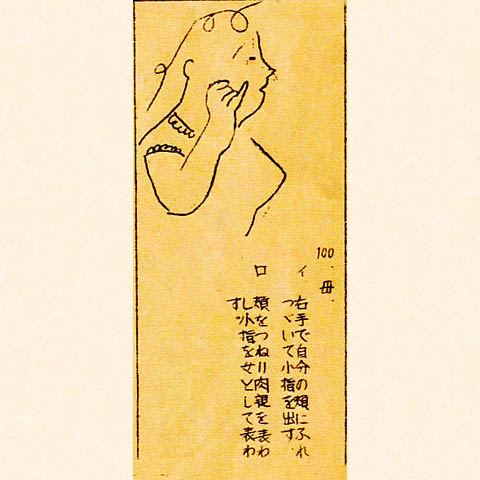 100.
母.
イ 右手で自分の頬にふれ
つゞいて小指を出す.
ロ 頬をつねり肉親を表わ
し小指を女として表わ
す